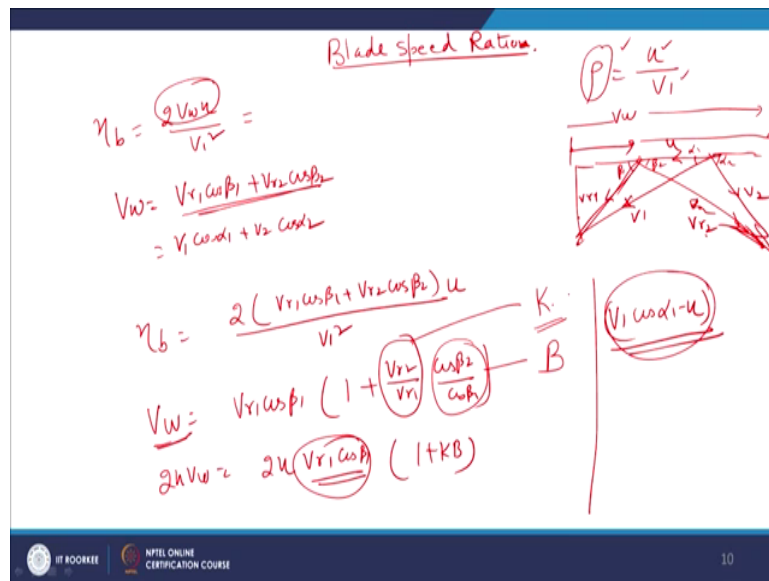 Blade Speed Ration.
ρ = u / V₁
Vw
ηb = 2Vwu / V₁² =
Vw = Vr₁cosβ₁ + Vr₂cosβ₂
= V₁cosα₁ + V₂cosα₂
u α₁ α₂
β₁ β₂
Vr₁ V₁ V₂
Vr₂
ηb = 2(Vr₁cosβ₁ + Vr₂cosβ₂)u / V₁²
K.
(V₁cosα₁-u)
Vw = Vr₁cosβ₁ (1 + Vr₂/Vr₁ cosβ₂/cosβ₁) B
2uVw = 2u Vr₁cosβ₁ (1+KB)
IIT ROORKEE NPTEL ONLINE
CERTIFICATION COURSE 10